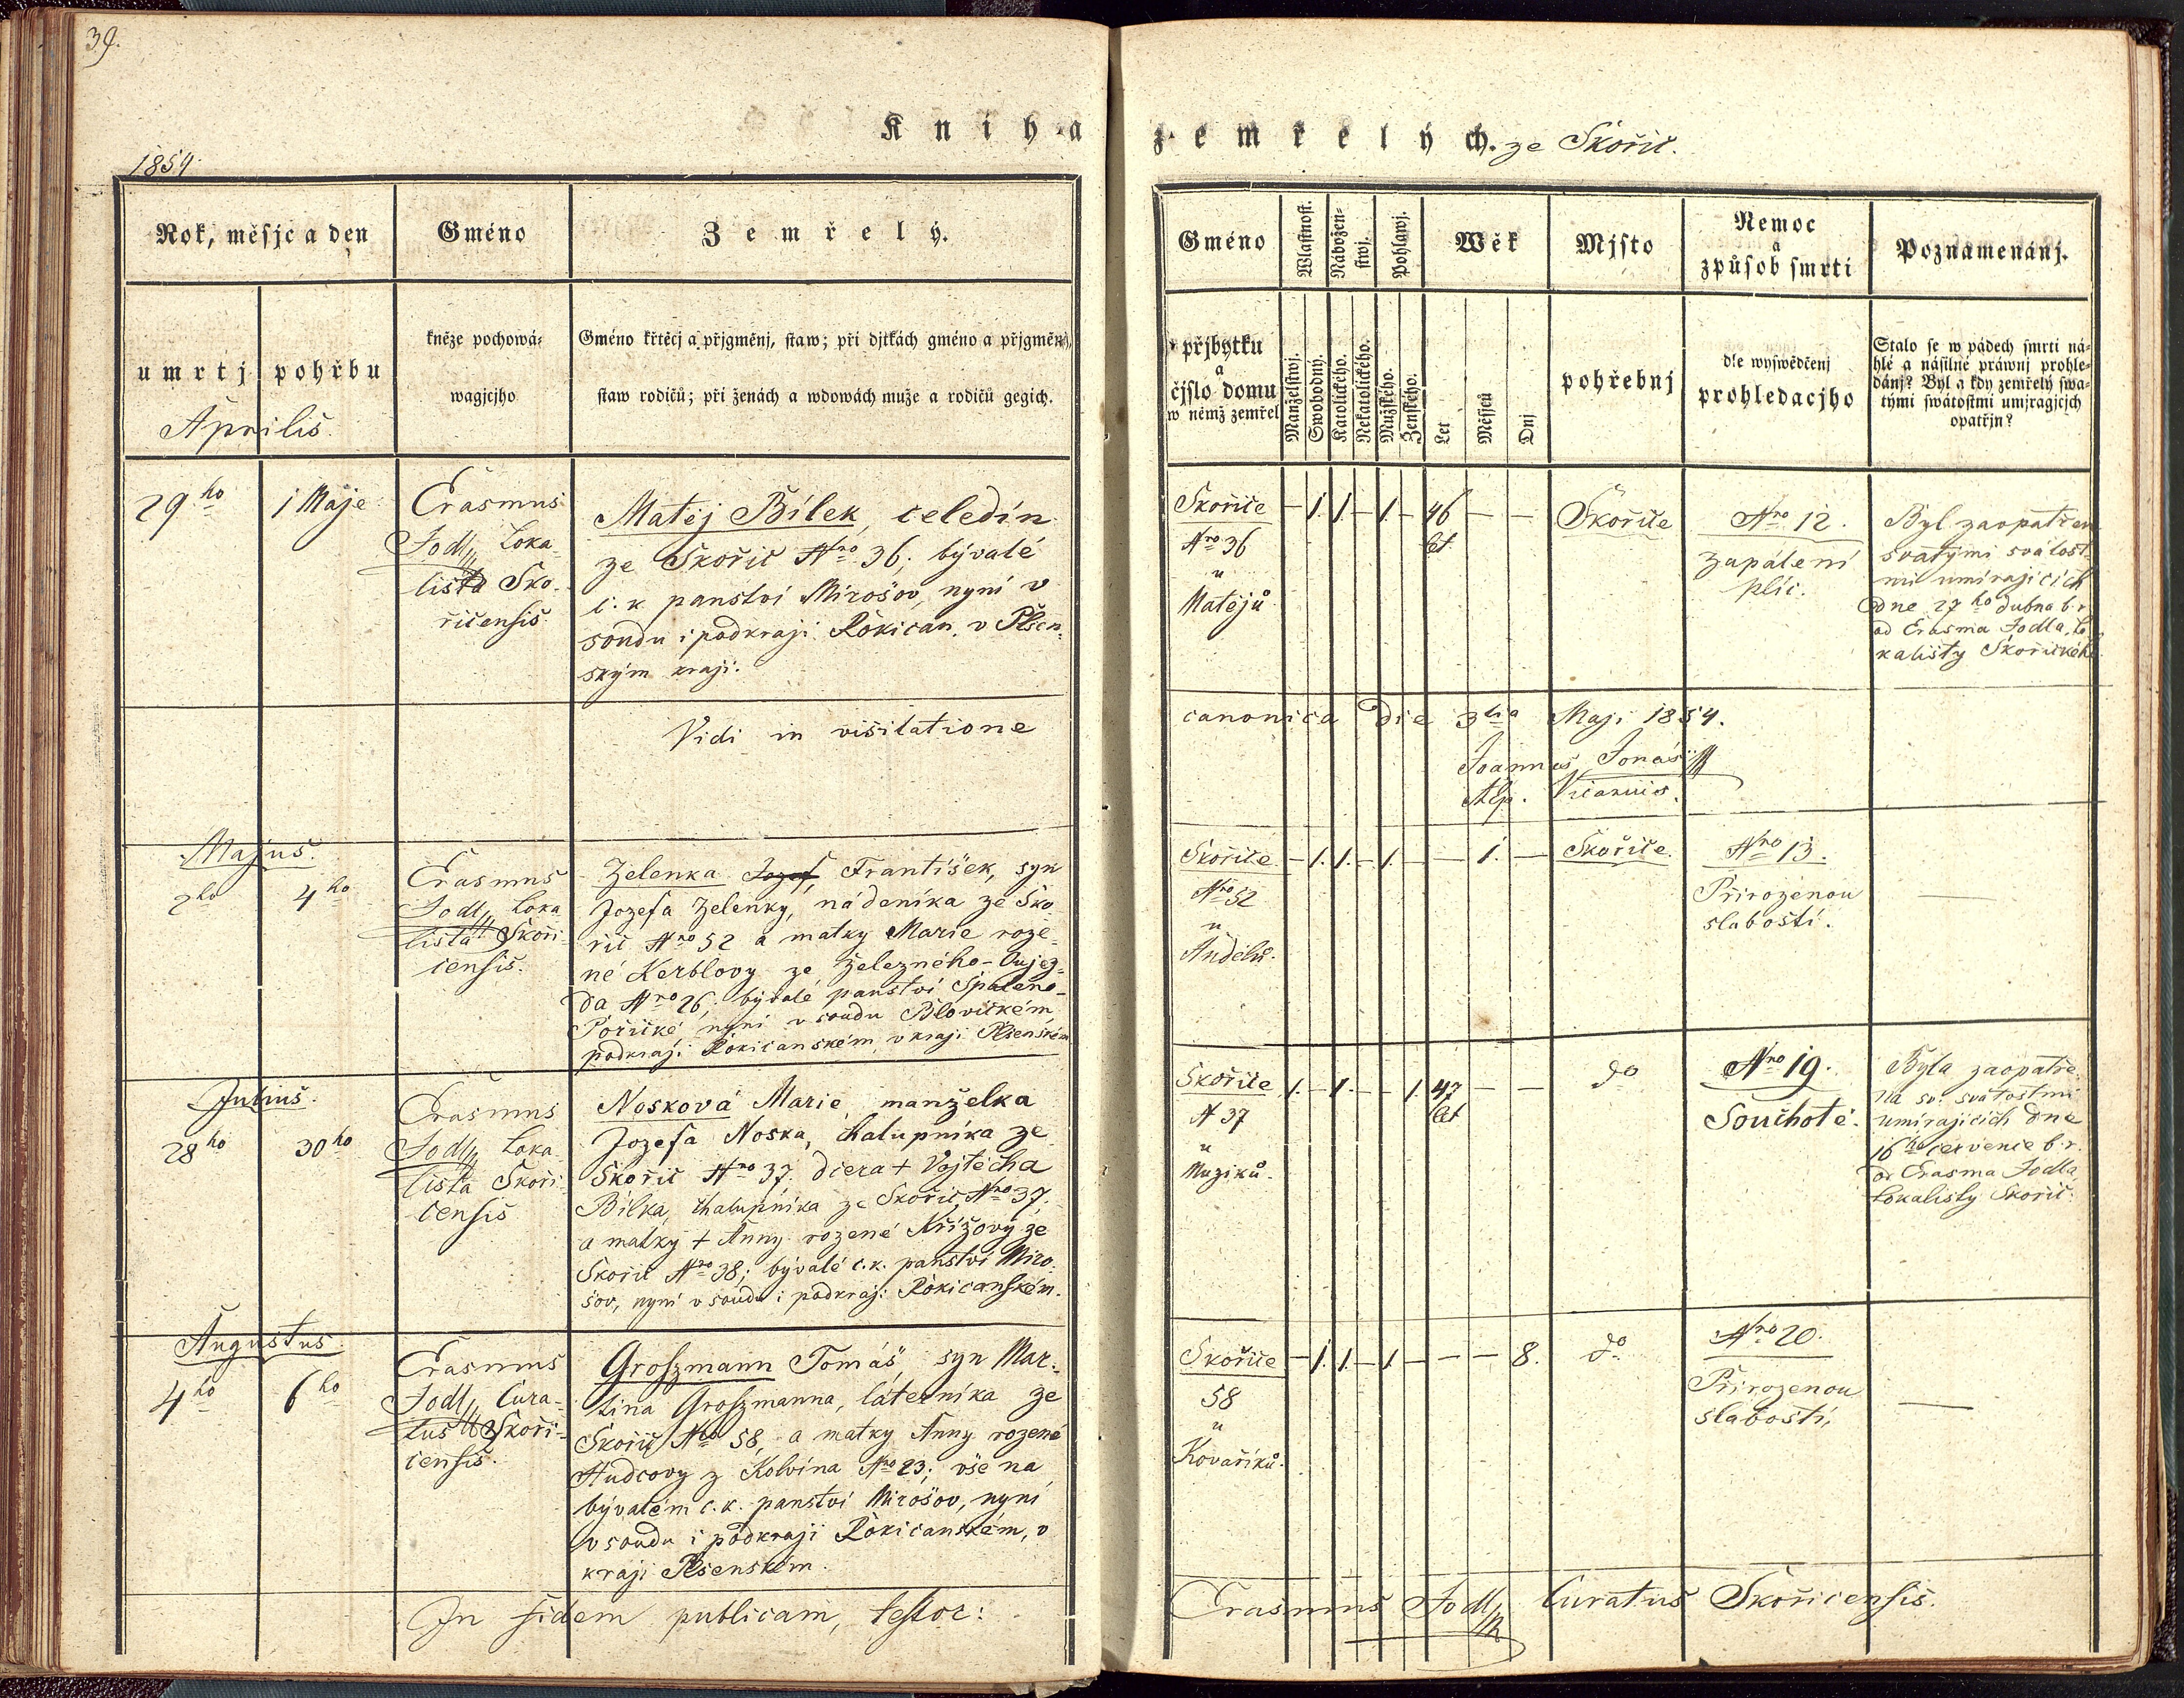 39.
Kniha zemřelých. ze Skořič.
1854.
Rok, měsjc a den
Gméno
Zemřelý.
umrtj
pohřbu
kněze pochowá-
wagjcjho
Gméno křtěcj a přjgměnj, staw; při djtkách gméno a přjgměnj,
staw rodičů; při ženách a wdowách muže a rodičů gegich.
Aprilis.
29ho
1 Máje
Erasmus
Jodl, Loka-
lista Sko-
řičensis.
Matěj Bílek, čeledín
ze Skořič Nro 36; bývalé
c. k. panství Mirošov, nyní v
soudu i podkraji Rokican. v Plsen-
ským kraji.
Vidi in visitatione
Majus.
2ho
4ho
Erasmus
Jodl, Loka-
lista Skoři-
censis.
Zelenka Jozef, František, syn
Jozefa Zelenky, nádeníka ze Sko-
řič Nro 52 a matky Marie roze-
né Kerblovy ze Železného-Oujez-
da Nro 26; bývalé panství Spaleno-
Poříčké nyní v soudu Blovickém,
podkraji Rokicanském, v kraji Plsenském
Julius.
28ho
30ho
Erasmus
Jodl, Loka-
lista Skoři-
censis
Nosková Marie, manželka
Jozefa Noska, chalupníka ze
Skořič Nro 37. dcera + Vojtěcha
Bílka, chalupníka ze Skořič Nro 37.
a matky + Anny rozené Křížovy ze
Skořič Nro 38; bývalé c. k. panství Miro-
šov, nyní v soudu i podkraji Rokicanském.
Augustus.
4ho
6ho
Erasmus
Jodl, Cura-
tus Skoři-
censis.
Groszmann Tomáš, syn Mar-
tina Groszmanna, láterníka ze
Skořič Nro 58, a matky Anny rozené
Hudcovy z Kolvína Nro 23; vše na
bývalém c. k. panství Mirošov, nyní
v soudu i podkraji Rokicanském, v
kraji Plsenském.
In fidem publicam, testor:
Gméno
Wlastnost.
Nábožen-
stwj.
Pohlawj.
Wěk
Mjsto
Nemoc
a
způsob smrti
Poznamenánj.
přjbytku
a
čjslo domu
w němž zemřel
Manželstwj.
Swobodný.
Katolického.
Nekatolického.
Mužského.
Ženského.
Let
Měsjců
Dnj
pohřebnj
dle wyswědčenj
prohledacjho
Stalo se w pádech smrti ná-
hlé a násilné práwnj prohle-
dánj? Byl a kdy zemřelý swa-
tými swátostmi umjragjcjch
opatřjn?
Skořiče
Nro 36
u
Matějů
– 1. 1. – 1. – 46 – –
let
Skořiče
Nro 12.
Zapálení
plíc.
Byl zaopatřen
svatými svátost-
mi umírajících
dne 27ho dubna b. r.
od Erasma Jodla, Lo-
kalisty Skořického
canonica die 3tia Maji 1854.
Joannes Jonáš
Vicarius.
Skořiče
Nro 52
u
Andělů.
– 1. 1. – 1. – – 1. –
Skořiče.
Nro 13.
Přirozenou
slabostí.
—
Skořiče
N 37
u
Muziků.
1. – 1. – – 1. 47 – –
let
do
Nro 19.
Souchotě.
Byla zaopatře-
na sv. svátostmi
umírajících dne
16ho července b. r.
od Erasma Jodla
Lokalisty Skořič.
Skořiče
58
u
Kovaříků.
– 1. 1. – 1. – – – 8.
do
Nro 20.
Přirozenou
slabostí,
—
Erasmus Jodl, Curatus Skořicensis.